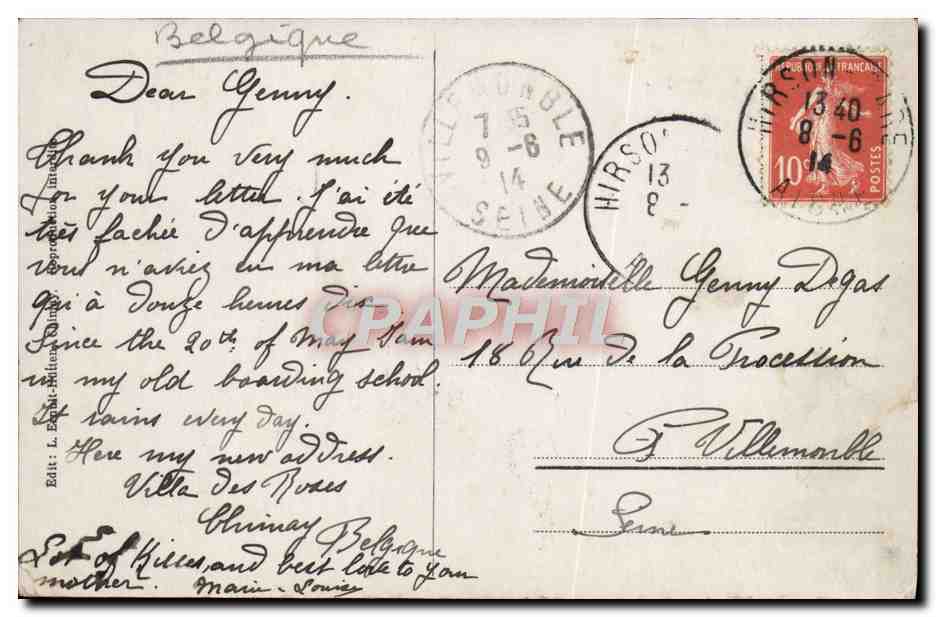 Belgique
Dear Genny.
Thank you very much
for your letter. J'ai été
très fachée d'apprendre que
vous n'aviez eu ma lettre
qu'à douze heures dix
Since the 20th. of May I am
in my old boarding school.
It rains every day.
Here my new address.
Villa des Roses
Chimay Belgique
Lot of Kisses, and best love to your
mother. Marie-Louise
Edit: L.
Reproduction interdite
VILLEMONBLE
7 15
9 -6
14
SEINE
HIRSO
13
8 -
HIRSON GARE
13 40
8 -6
14
REPUBLIQUE FRANÇAISE
10c
POSTES
Mademoiselle Genny Degas
18 Rue de la Procession
Villemonble
Seine
CPAPHIL